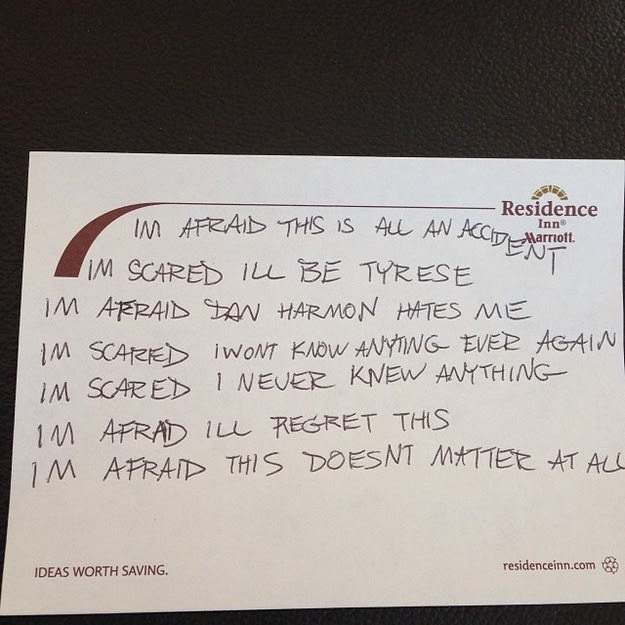 Residence
Inn®
Marriott.
IM AFRAID THIS IS ALL AN ACCIDENT
IM SCARED ILL BE TYRESE
IM AFRAID DAN HARMON HATES ME
IM SCARED I WONT KNOW ANYTING EVER AGAIN
IM SCARED I NEVER KNEW ANYTHING
IM AFRAD ILL REGRET THIS
IM AFRAID THIS DOESNT MATTER AT ALL
IDEAS WORTH SAVING.
residenceinn.com